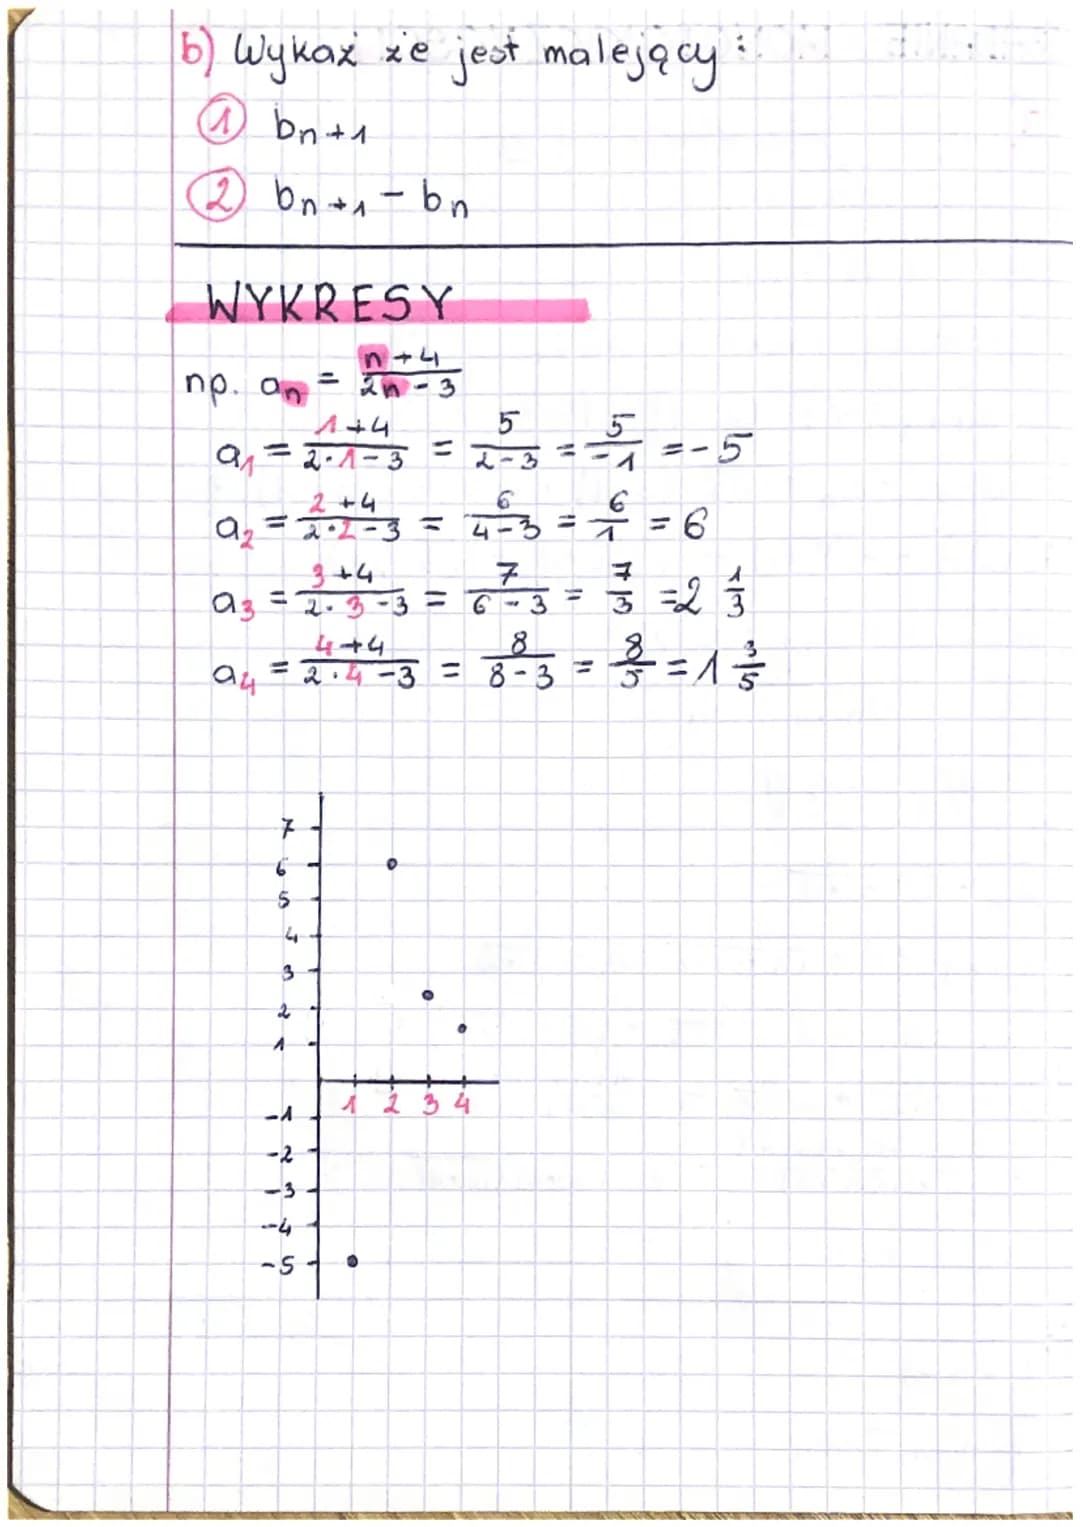 b) Wykaż że jest malejący:
① bn+1
② bn+1 - bn
WYKRESY
np. an = n+4 / 2n-3
a1 = 1+4 / 2·1-3 = 5 / 2-3 = 5 / -1 = -5
a2 = 2+4 / 2·2-3 = 6 / 4-3 = 6 / 1 = 6
a3 = 3+4 / 2·3-3 = 7 / 6-3 = 7 / 3 = 2 1/3
a4 = 4+4 / 2·4-3 = 8 / 8-3 = 8 / 5 = 1 3/5
7
6
5
4
3
2
1
1 2 3 4
-1
-2
-3
-4
-5